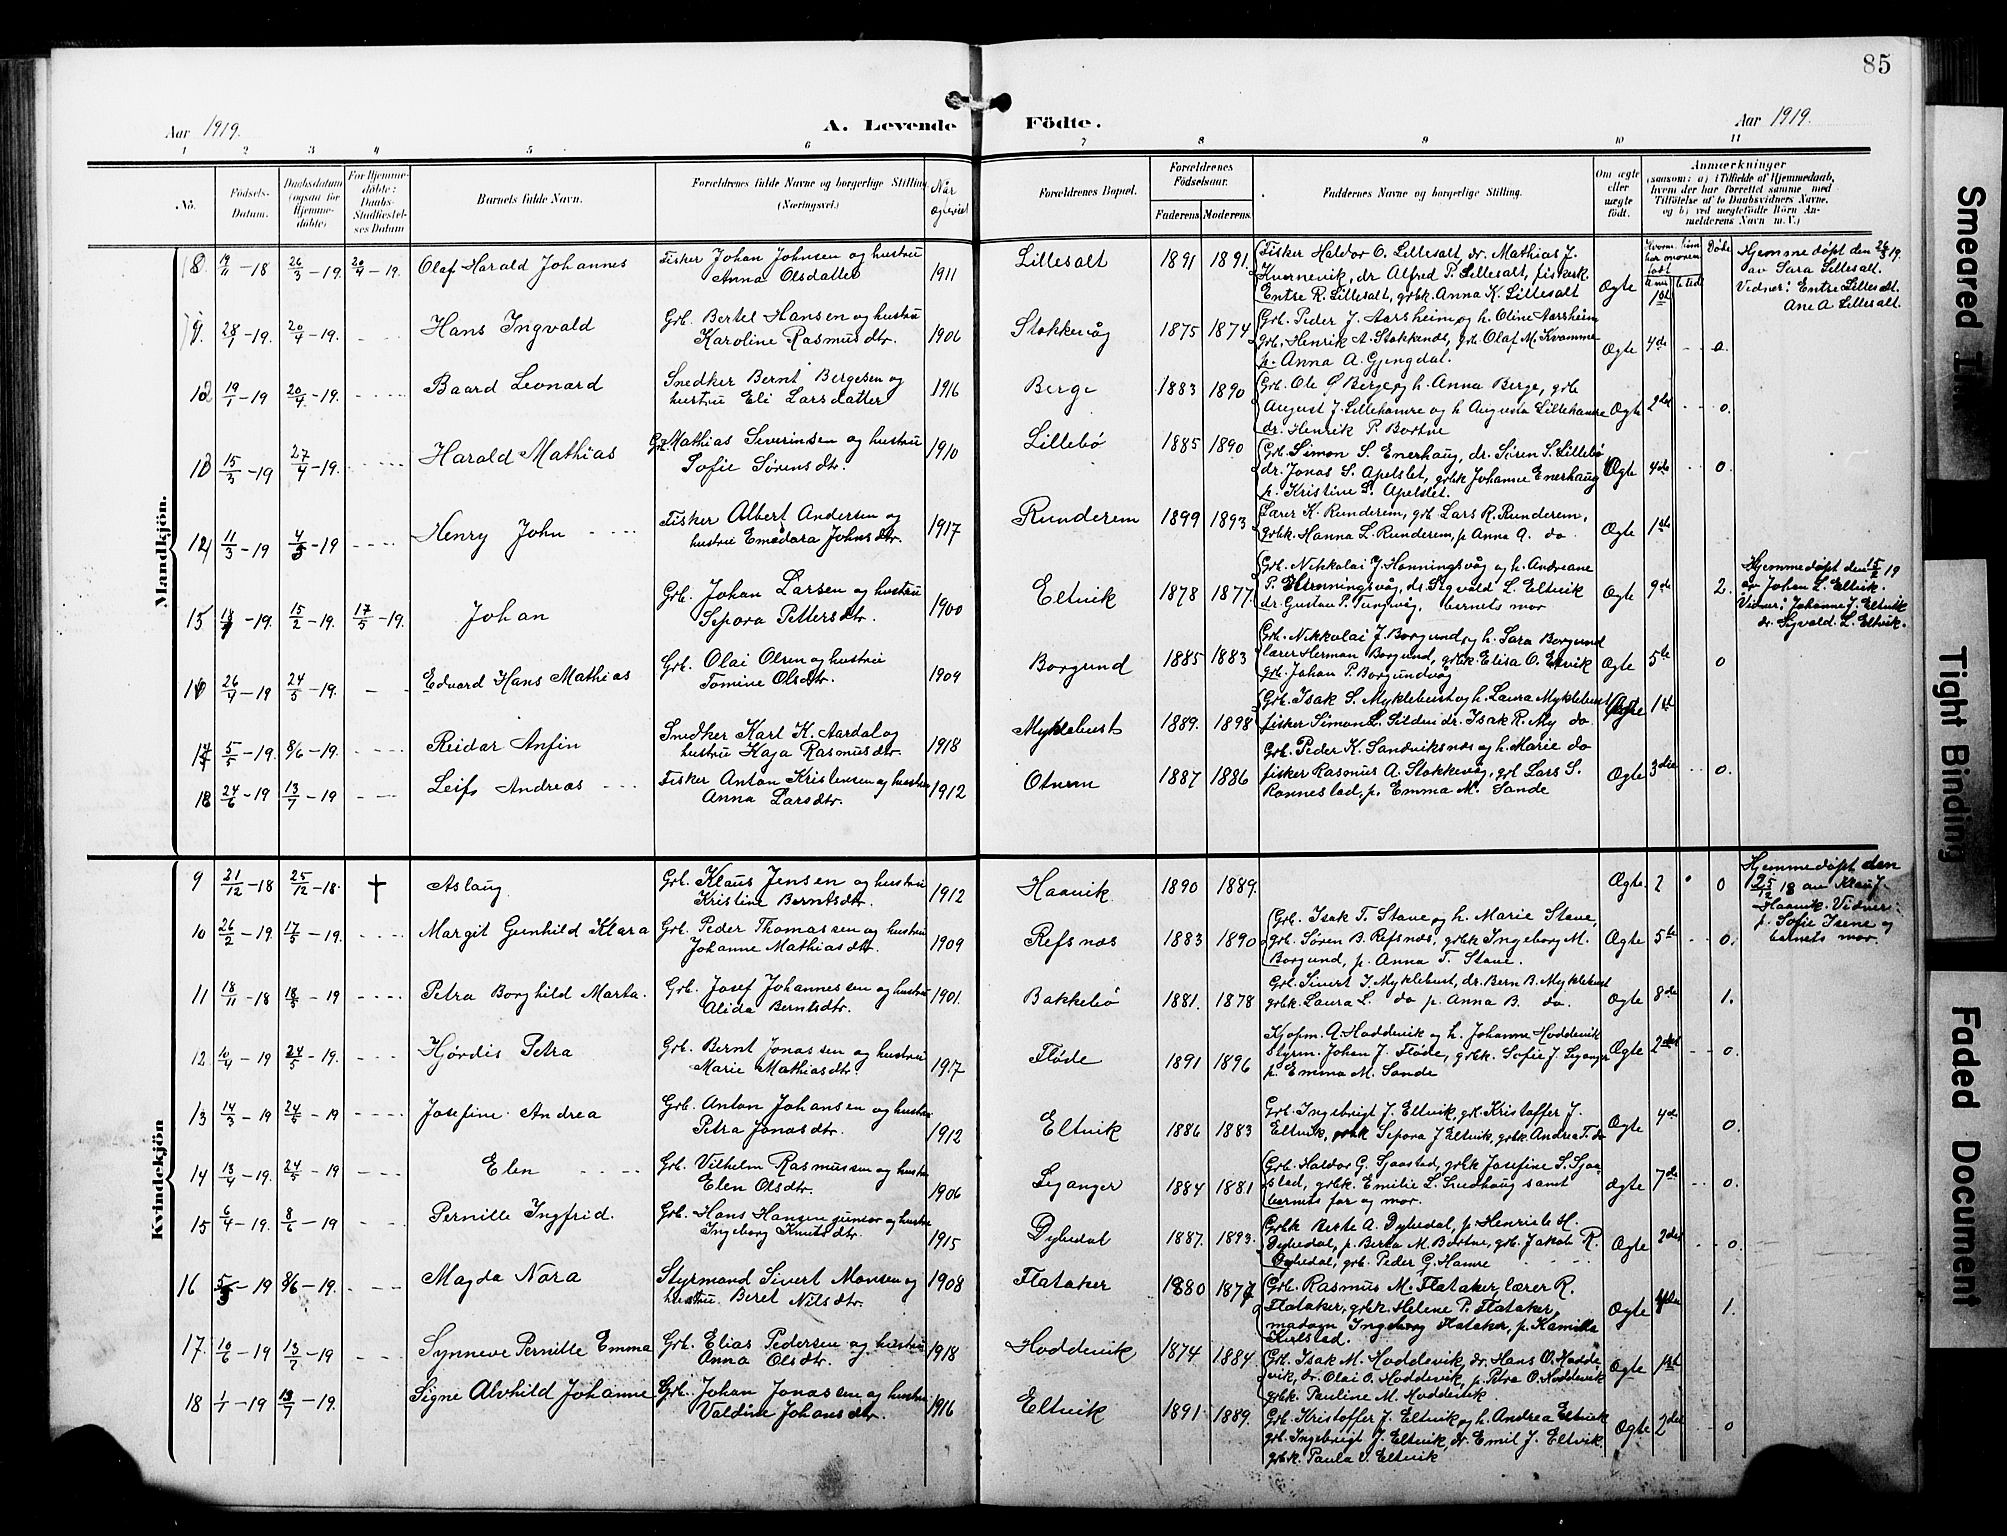 85
Aar 1919. A. Levende Födte. Aar 1919.
1 2 3 4 5 6 7 8 9 10 11
No. Födsels-Datum. Daabsdatum (ogsaa för Hjemmedöbte) For Hjemmedöbte: Daabs-Stadfæstelses Datum Barnets fulde Navn. Forældrenes fulde Navne og borgerlige Stilling (Næringsvei.) Når ægteviet Forældrenes Bopæl. Forældrenes Födselsaar. Faderens. Moderens. Faddernes Navne og borgerlige Stilling. Om ægte eller uægte födt. Anmærkninger (saasom: a) i Tilfælde af Hjemmedaab, hvem der har forrettet samme, med Tilföielse af to Daabsvidners Navne, og b) ved uægtefödte Börn Anmelderens Navn m.V.)
Mandkjön.
8 19/11-18 26/3-19. 20/4-19. Olaf Harald Johannes Fisker Johan Johnsen og hustru Anna Olsdatter 1911 Lillesalt 1891 1891. Fisker Haldor O. Lillesalt, dr. Mathias J. Hvernevik, dr Alfred P. Lillesalt, fiskerk. Entre R. Lillesalt, grbk. Anna K. Lillesalt Ægte 1st Hjemmedøpt den 26/3 19. av Sara Lillesalt. Vidner: Entre Lillesalt. Ane A. Lillesalt.
9. 28/1-19. 20/4-19. Hans Ingvald Grb. Bertel Hansen og hustru Karoline Rasmusdtr. 1906 Stokkevåg 1875 1874 Grb. Peder J. Aarsheim og h. Oline Aarsheim grb. Henrik A. Stokkends, grb. Olaf M. Kvamme p. Anna A. Gjengdal. Ægte 4de 0.
10 19/1-19 20/4-19. Baard Leonard Snedker Bernt Bergesen og hustru Eli Larsdatter 1916 Berge 1883 1890 Grb. Ole S. Berge og h. Anna Berge, grb August J. Lillehamre og h Augusta Lillehamre dr. Henrik P. Bortne Ægte 2det 0.
15/3-19 27/4-19. Harald Mathias Grb. Mathias Severinsen og hustru Sofie Sørensdtr. 1910 Lillebø 1885 1890 Grb. Simon S. Enerhaug, dr. Søren S. Lillebø dr. Jonas S. Apelset, grbk Johanne Enerhaug p. Kristine S. Apelset. Ægte 4de 0.
12 11/3-19 4/5-19 Henry John Fisker Albert Andersen og hustru Emedara Johnsdtr. 1917 Runderem 1899 1893 Lærer K. Runderem, grb Lars R. Runderem, grbk. Hanna L. Runderem, p Anna A. do Ægte 1ste
15 -19. 15/2-19. 17/5-19. Johan Grb. Johan Larsen og hustru Sepora Pettersdtr. 1900 Eltvik 1878 1877. Grb. Nikkolai J. Honningsvåg og h. Andreane P. Honningsvåg, dr. Sigvald L. Eltvik dr. Gustav P. Tungevåg, bernets mor Ægte 9de 2. Hjemmedøpt den 15/2 19 av Johan L. Eltvik. Vidner: Johanne J. Eltvik dr. Sigvald. L. Eltvik.
26/4-19 24/5-19. Edvard Hans Mathias Grb. Olai Olsen og hustru Tomine Olsdtr. 1909 Borgund 1885 1883 Grb. Nikkolai J. Borgund og h. Sara Borgund lærer Herman Borgund, grbk. Elisa O. Ervik grb. Johan P. Borgundvåg Ægte 5te 0
17 5/5-19. 8/6-19. Reidar Anfin Snedker Karl K. Aardal og hustru Kaja Rasmusdtr. 1918 Myklebust 1889. 1898 Grb. Isak S. Myklebust og h. Laura Myklebust fisker Simon L. Silden dr. Isak R. My do Ægte 1st
18 24/6-19 13/7-19 Leif Andreas Fisker Anton Kristensen og hustru Anna Larsdtr. 1912 Otnem 1887 1886 Grb. Peder K. Sandviksnæs og h. Marie do fisker Rasmus A. Stokkevåg, grb Lars S. Rønnestad, p. Emma M. Sande Ægte 3die 0.
Kvindekjön
9 21/12-18 25/12-18. † Aslaug Grb. Klaus Jensen og hustru Kristine Berntsdtr. 1912 Haavik 1890 1889. Ægte 2 0 Hjemmedøpt den 25/12 18 av Klaus J. Haavik. Vidner: p. Sofie Irene og barnets mor.
10 26/2-19. 17/5-19. Margit Gunhild Klara Grb. Peder Thomassen og hustru Johanne Mathiasdtr. 1909 Refsnæs 1883 1890 Grb. Isak T. Stave og h. Marie Stave, grb. Søren B. Refsnæs, grbk Ingeborg M. Borgund, p. Anna T. Stave. Ægte 5te 0.
11 18/11-18 18/5-19 Petra Borghild Marta. Grb. Josef Johannessen og hustru Alida Berntsdtr. 1901. Bakkebø 1881. 1878 Grb. Sivert I. Myklebust, dr. Bern B. Myklebust grbk. Laura L. do p. Anna B. do. Ægte 8de 1.
12 10/4-19 24/5-19. Hjørdis Petra Grb. Bernt Jonassen og hustru Marie Mathiasdtr. 1917 Fløde 1891 1896 Kjøpm. A. Hoddevik og h. Johanne Hoddevik Styrm. Johan J. Fløde, grbk. Sofie J. Leganger p. Emma M. Sande Ægte 2det 0.
13 14/3-19 24/5-19 Josefine Andrea Grb. Anton Johansen og hustru Petra Jonasdtr. 1912 Eltvik 1886 1883 Grb. Ingebrigt J. Eltvik, grb. Kristoffer J. Eltvik, grbk Sepora J Eltvik, grbk. Andrea T. do Ægte 4de 0.
14 13/4-19. 24/5-19 Elen Grb. Vilhelm Rasmussen og hustru Elen Olsdtr. 1906 Leganger 1884 1881 Grb. Haldor G. Sjaastad, grbk Josefine S. Sjaastad, grbk. Emilie L. Sundhaug samt barnets far og mor. Ægte 7de 0.
15 6/4-19. 8/6-19 Pernille Ingfrid. Grb. Hans Hansen junior og hustru Ingeborg Knutsdtr. 1915 Dybedal 1887. 1893. Grbk Berte A. Dybedal, p. Henriete H. Dybedal, p. Berta M. Bortne, grb. Jakob R. Dybedal, grb. Peder G. Hamre Ægte 2det 0.
16 5/3-19 8/6-19. Magda Nora Styrmand Sivert Monsen og hustru Beret Nilsdtr. 1908 Flataker 1880 1877 Grb. Rasmus M. Flataker, lærer R. Flataker, grbk. Helene P. Flataker, madam Ingeborg Flataker, p. Kamilla Kjelstad. Ægte 1.
17. 10/6-19 13/7-19 Synneve Pernille Emma Grb. Elias Pedersen og hustru Anna Olsdtr. 1918 Hoddevik 1874 1884 Grb. Isak M. Hoddevik, dr. Hans O. Hoddevik, dr. Olai O. Hoddevik, p. Petra O. Hoddevik grbk. Pauline M. Hoddevik Ægte 1st 0.
18 1/7-19 13/7-19. Signe Alvhild Johanne Grb. Johan Jonassen og hustru Valdine Johansdtr. 1916 Eltvik 1891. 1889. Grb. Kristoffer J. Eltvik og h. Andrea Eltvik grb. Ingebrigt J. Eltvik, dr. Emil J. Eltvik. grbk. Paula V. Eltvik Ægte 2det 0
Smeared Ink
Tight Binding
Faded Document